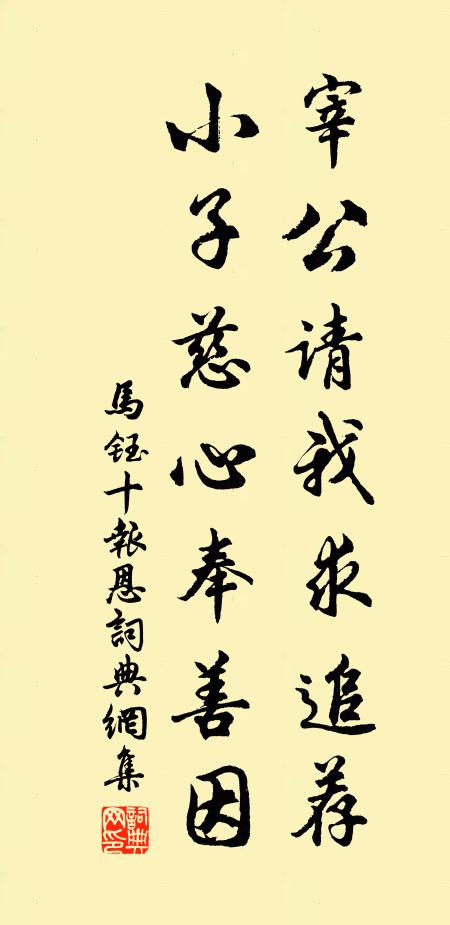 宰公请我求追荐
小子慈心奉善因
馬鈺十報恩詞典網集
詞典网印